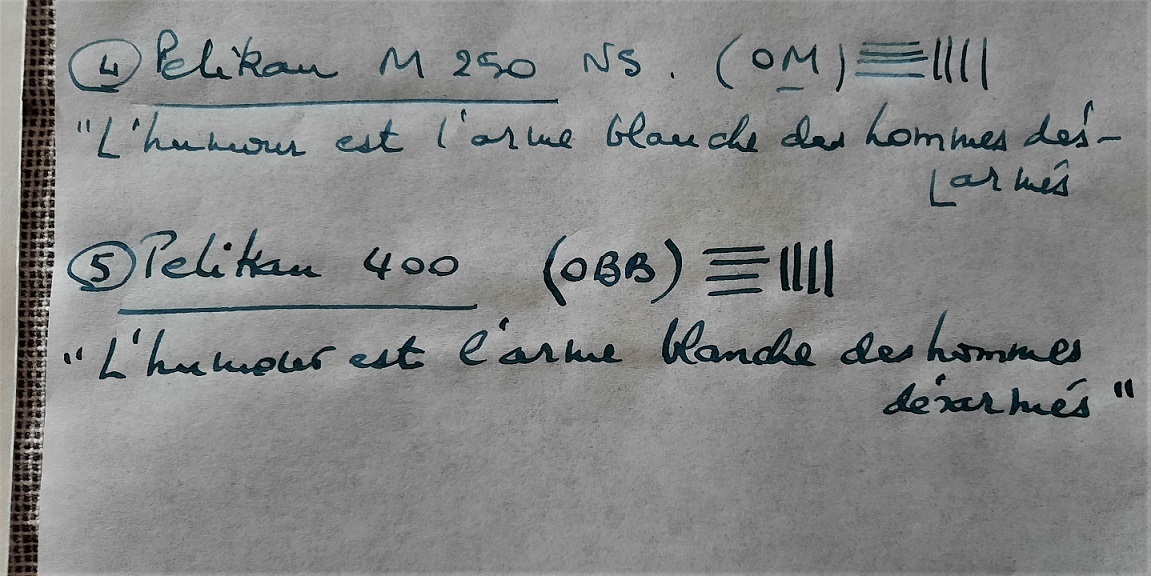 ④ Pelikan M 250 NS. (OM)
"L'humour est l'arme blanche des hommes dés-
armés
⑤ Pelikan 400 (OBB)
"L'humour est l'arme blanche des hommes
désarmés"